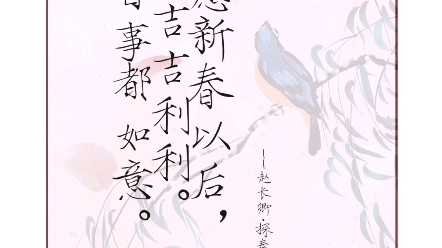 愿新春以后，
吉吉利利。
百事都如意。
—赵长卿·探春